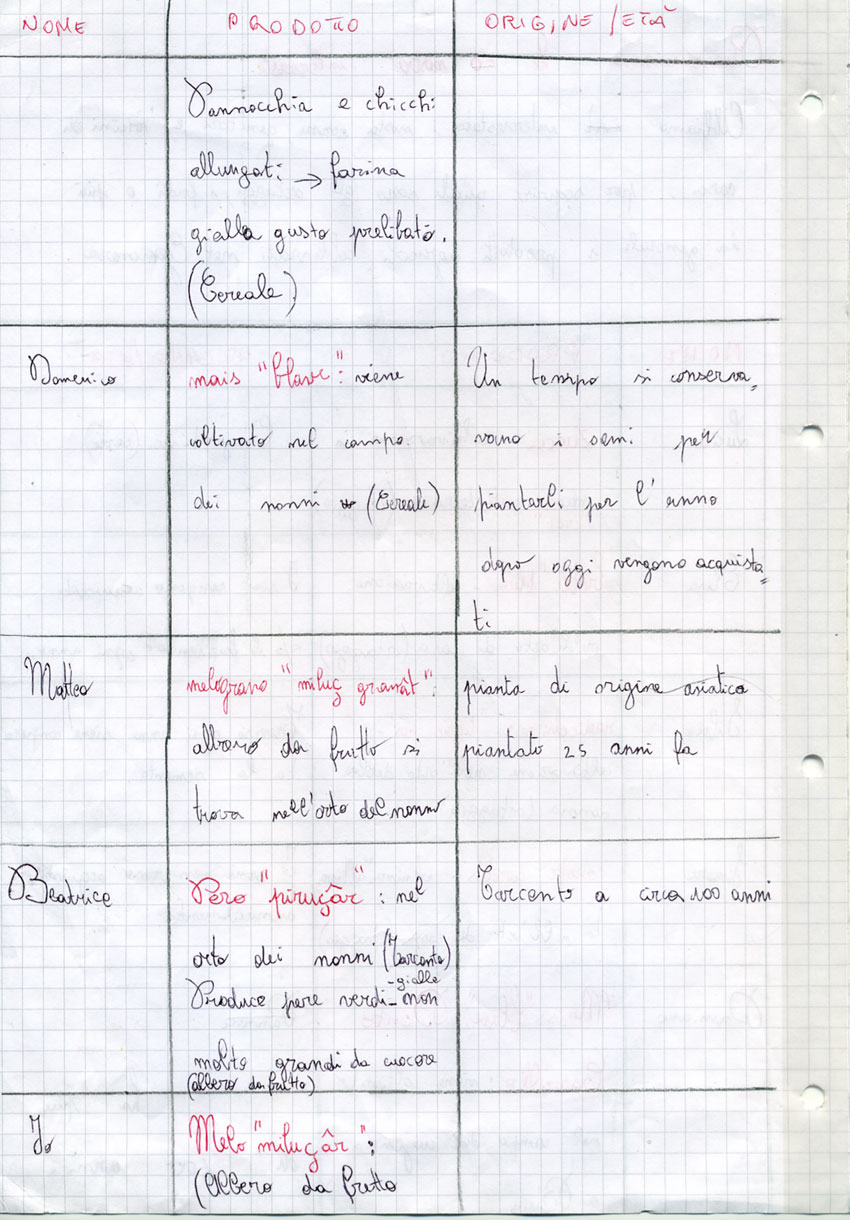 NOME PRODOTTO ORIGINE / ETÀ
Pannocchia e chicchi
allungati → farina
gialla gusto prelibato.
(Cereale)
Domenico
mais "blave": viene
coltivato nel campo
dei nonni (Cereale)
Un tempo si conserva=
vano i semi per
piantarli per l'anno
dopo oggi vengono acquista=
ti
Matteo
melograno "miluç granât":
albero da frutto si
trova nell'orto del nonno
pianta di origine asiatica
piantato 25 anni fa
Beatrice
Pero "piruçâr": nel
orto dei nonni (Tarcento)
Produce pere verdi-gialle non
molto grandi da cuocere
(albero da frutto)
Tarcento a circa 100 anni
Io
Melo "miluçâr":
(Albero da frutto